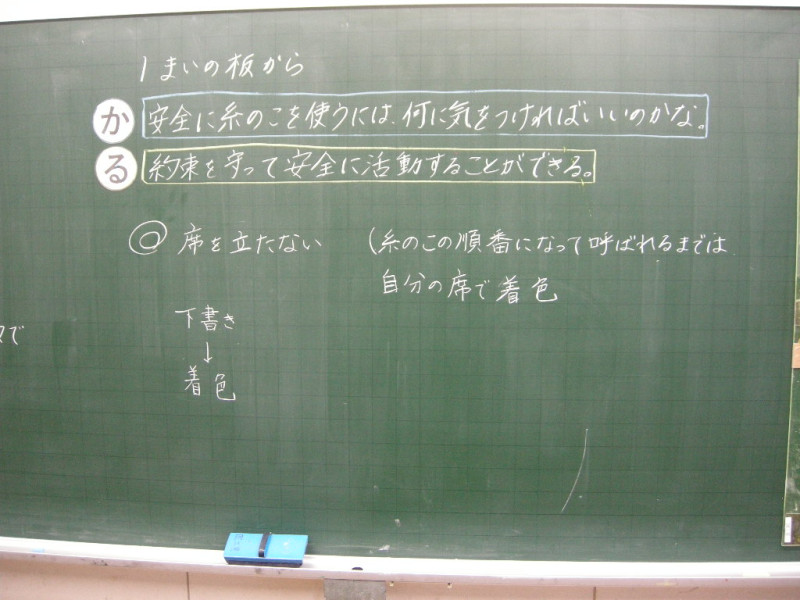 1まいの板から
か 安全に糸のこを使うには、何に気をつければいいのかな。
る 約束を守って安全に活動することができる。
◎ 席を立たない (糸のこの順番になって呼ばれるまでは
自分の席で着色
下書き
↓
着色
で